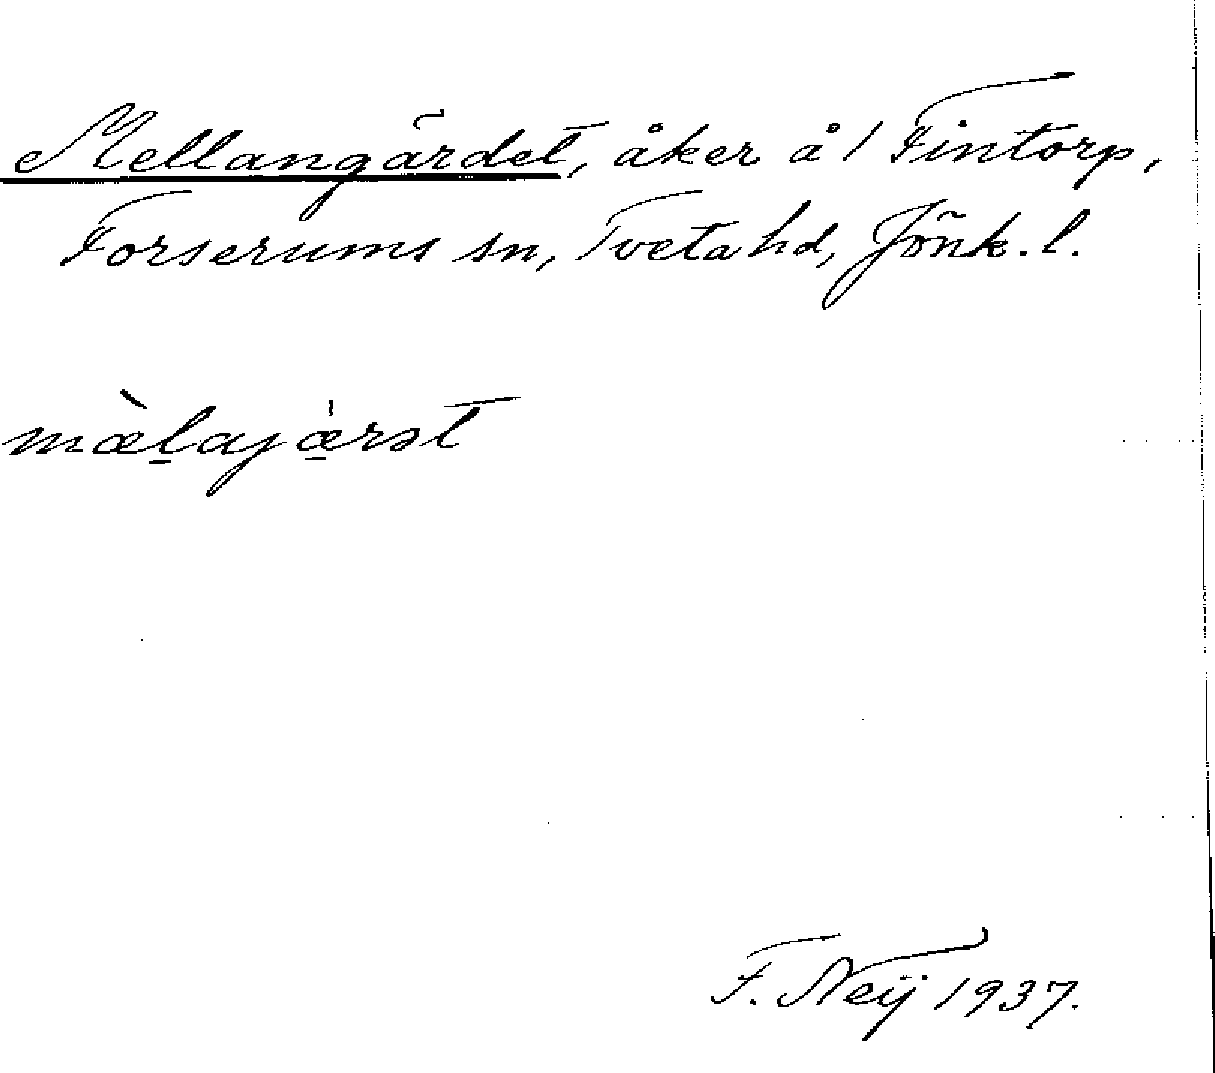 Mellangärdet, åker å 1 Fintorp,
Forserums sn, Tveta hd, Jönk. l.
mæ̀l̠ajæ̠̍rst
F. Neij 1937.